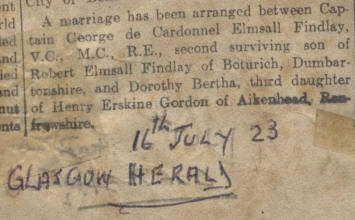 City of
A marriage has been arranged between Cap-
tain George de Cardonnel Elmsall Findlay,
V.C., M.C., R.E., second surviving son of
Robert Elmsall Findlay of Boturich, Dumbar-
tonshire, and Dorothy Bertha, third daughter
of Henry Erskine Gordon of Aikenhead, Ren-
frewshire.
16th JULY 23
GLASGOW HERALD